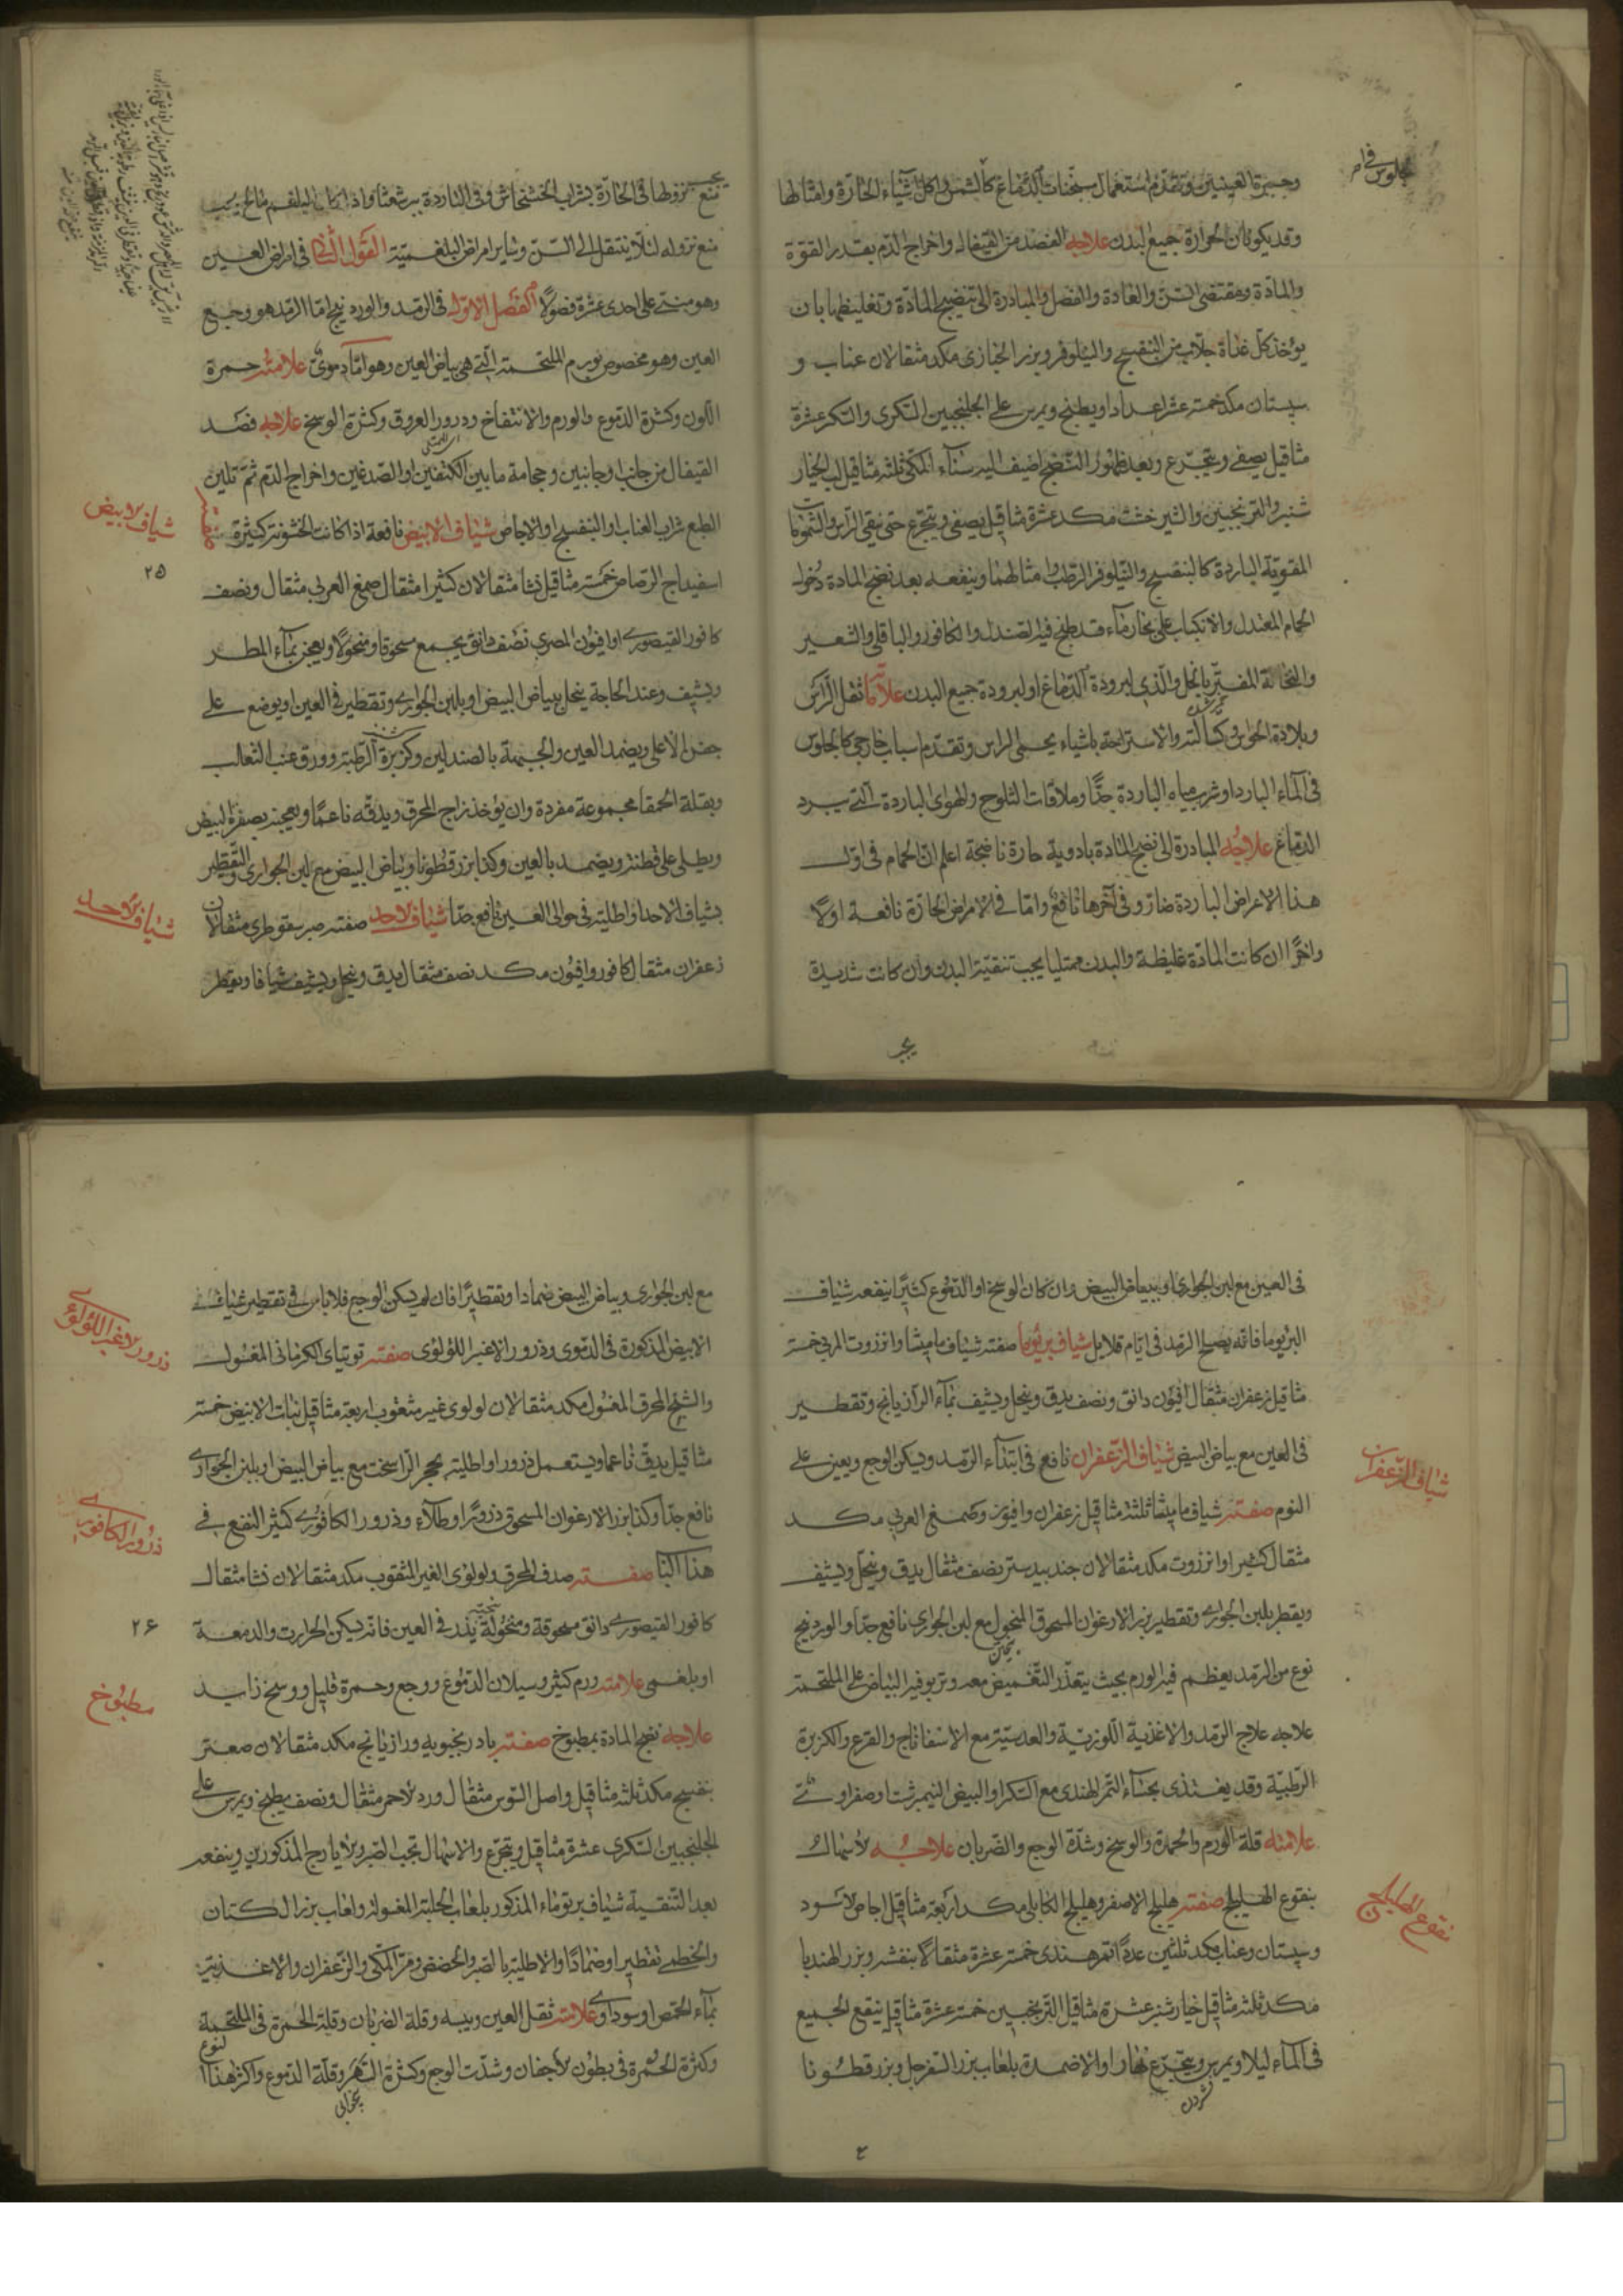 وحمرة العينين وتقدم استعمال مسخنات الدماغ كالشمس واكل اشياء الحارة وامثالها
وقد يكون من الحرارة جميع البدن علاجه الفصد من القيفال واخراج الدم بقدر القوة
والمادة ومقتضى السن والعادة والفصل والمبادرة الى تنضيج المادة وتغليظها بان
يؤخذ كل غداة جلاب من البنفسج والنيلوفر وبزر الخبازى مكد مثقالان عناب و
سپستان مكد خمسة عشر اعدادا ويطبخ ويمرس على الجلنجبين السكرى والسكر عشرة
مثاقيل يصفى ويتجرع وبعد ظهور النضج اضيف اليه سناء المكى ثلثه مثاقيل لب الخيار
شنبر والترنجبين والشيرخشت مكد عشرة مثاقيل يصفى ويتجرع حتى نقى الراس والشمومات
المقوية الباردة كالبنفسج والنيلوفر الرطب وامثالهما وينفعه بعد نضج المادة دخول
الحمام المعتدل والانكباب على بخار ماء قد طبخ فيه الصندل والكافور والباقلى والشعير
والنخالة بالخل والذى لبرودة الدماغ او لبرودة جميع البدن علامته ثقل الراس
وبلادة الحواس وكسالته والاستراحة باشياء يحمى الراس وتقدم اسباب خارجى كالجلوس
فى الماء البارد او شرب مياه الباردة جدا وملاقات الثلوج والهوى الباردة التى يبرد
الدماغ علاجه المبادرة الى نضج المادة بادوية حارة ناضجة اعلم ان الحمام فى اول
هذا الامراض الباردة ضار وفى آخرها نافع واما فى الامراض الحارة نافعة اولا
واخرا ان كانت المادة غليظة والبدن ممتليا يجب تنقية البدن وان كانت شديدة
يجب
منع نزولها فى الحارة بشراب الخشخاش وفى الباردة ببرشعثا واذا كان البلغم مالح يجب
منع نزوله لئلا ينتقل الى السن وساير امراض البلغمية القول الثانى فى امراض العين
وهو مبنى على احدى عشرة فصولا الفصل الاول فى الرمد والوردينج اما الرمد هو وجع
العين وهو مخصوص بورم الملتحمة التى هى بياض العين وهو اما دموى علامته حمرة
اللون وكثرة الدموع والورم والانتفاخ ودرور العروق وكثرة الوسخ علاجه فصد
القيفال من جانب او جانبين وحجامة ما بين الكتفين او الصدغين واخراج الدم ثم تليين
الطبع شراب العناب او البنفسج والاجاص شياف الابيض نافعة اذا كانت الخشونة كثيرة صفته
شياف الابيض
٢٥
اسفيداج الرصاص خمسة مثاقيل نشا مثقالان كثيرا مثقال صمغ العربى مثقال ونصف
كافور القيصورى او افيون المصرى نصف دانق يجمع مسحوقا ومنخولا ويعجن بماء المطر
ويشيف وعند الحاجة ينحل ببياض البيض او بلبن الجوارى وتقطير فى العين او يوضع على
جفن الاعلى ويضمد العين والجبهة بالصندلين وكزبرة الرطبة وورق عنب الثعالب
وبقلة الحمقا مجموعة مفردة وان يؤخذ زاج المحرق ويدقه ناعما ويعجنه بصفرة البيض
ويطلى على قطنة ويضمد بالعين وكذا بزر قطونا وبياض البيض مع لبن الجوارى والتقطير
بشياف الاحد واطليته فى حوالى العين نافع جدا شياف الاحد صفته صبر سقوطرى مثقالان
شياف الاحد
زعفران مثقال كافور وافيون مكد نصف مثقال يدق وينخل ويشيف شيافا ويقطر
فى العين مع لبن الجوارى او ببياض البيض وان كان الوسخ او الدموع كثيرا ينفعه شياف
البريوما فانه يصلح الرمد فى ايام قلايل شياف بريوما صفته شياف ماميثا وانزروت المربى خمسة
مثاقيل زعفران مثقال افيون دانق ونصف يدق وينخل ويشيف بماء الرازيانج وتقطير
فى العين مع بياض البيض شياف الزعفران نافع فى ابتداء الرمد ويسكن الوجع ويعين على
شياف الزعفران
النوم صفته شياف ماميثا ثلثة مثاقيل زعفران وافيون وصمغ العربى مكد
مثقال كثيرا وانزروت مكد مثقالان جندبيدستر نصف مثقال يدق وينخل ويشيف
ويقطر بلبن الجوارى وتقطير بزر الارغوان المسحوق المنخول مع لبن الجوارى نافع جدا والوردينج
نوع من الرمد يعظم فيه الورم بحيث يتعذر التغميض معه وتربو فيه البياض على الملتحمة
علاجه علاج الرمد والاغذية اللوزية والعدسية مع الاسفاناج والقرع والكزبرة
الرطبة وقد يغتذى بحساء التمر الهندى مع السكر او البيض النيمبرشت او صفراوى
علامته قلة الورم والحمرة والوسخ وشدة الوجع والضربان علاجه الاسهال
بنقوع الهليلج صفته هليلج الاصفر وهليلج الكابلى مكد اربعة مثاقيل اجاص الاسود
نقوع الهليلج
وسپستان وعناب مكد ثلثين عددا تمر هندى خمسة عشرة مثقالا بنفشه وبزر الهندبا
مكد ثلثه مثاقيل خيارشنبر عشرة مثاقيل الترنجبين خمسة عشرة مثاقيل ينقع الجميع
فى الماء ليلا ويمرس ويتجرع نهارا والاضمدة بلعاب بزر السفرجل وبزر قطونا
مع لبن الجوارى وبياض البيض ضمادا وتقطيرا فان لم يسكن الوجع فلا باس فى تقطير شياف
الابيض المذكورة فى الدموى وذرور الاغبر اللؤلؤى صفته توتياى الكرمانى المغسول
ذرور الاغبر اللؤلؤى
والشيح المحرق المغسول مكد مثقالان لولوى غير مثقوب اربعة مثاقيل نبات الابيض خمسة
مثاقيل يدق ناعما ويستعمل ذرورا واطليته بحجر الراسخت مع بياض البيض او بلبن الجوارى
نافع جدا وكذا بزر الارغوان المسحوق ذرورا وطلاء وذرور الكافورى كثير النفع فى
ذرور الكافورى
هذا الباب صفته صدف المحرق ولولوى الغير المثقوب مكد مثقالان نشا مثقال
كافور القيصورى دانق مسحوقة ومنخولة يذر فى العين فانه يسكن الحرارت والدمعة
٢٦
او بلغمى علامته ورم كثير وسيلان الدموع ووجع وحمرة قليل ووسخ زايد
مطبوخ
علاجه نضج المادة بمطبوخ صفته بادرنجبويه ورازيانج مكد مثقالان صعتر
بنفسج مكد ثلثه مثاقيل واصل السوس مثقال ورد الاحمر مثقال ونصف يطبخ ويمرس على
الجلنجبين السكرى عشرة مثاقيل ويتجرع والاسهال بحب الصبر والايارج المذكورين وينفعه
بعد التنقية شياف بريوماء المذكور بلعاب الحلبة المغسولة ولعاب بزر الكتان
والخطمى تقطيرا وضمادا والاطلية بالصبر والحضض ومر المكى والزعفران والاغذية
بماء الحمص او سوداوى علامته ثقل العين ويبسه وقلة الضربان وقلة الحمرة فى الملتحمة
وكثرة الحمرة فى بطون الاجفان وشدت الوجع وكثرة السهر وقلة الدموع واكثر هذا النوع